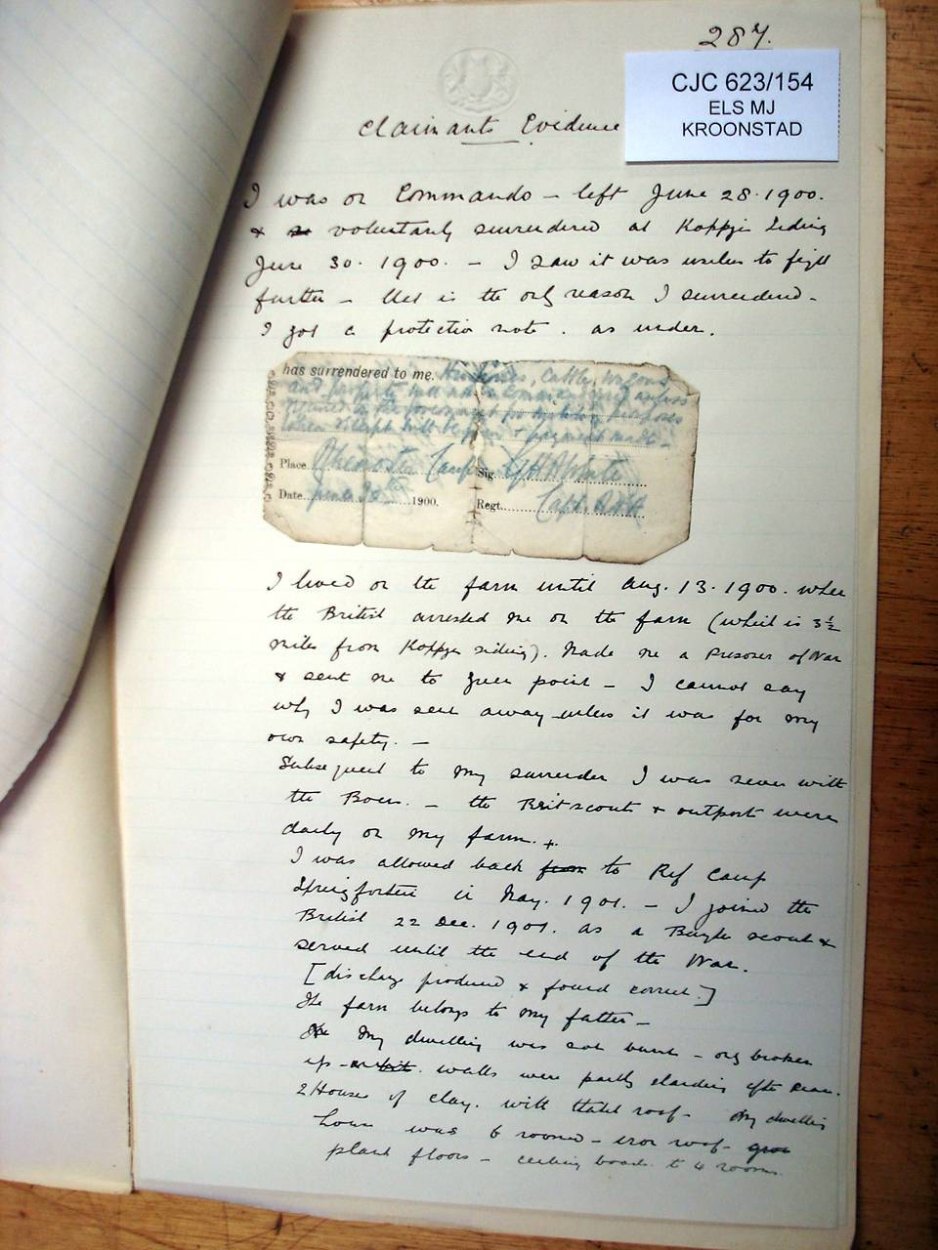 287.
CJC 623/154
ELS MJ
KROONSTAD
Claimants Evidence
I was on Commando – left June 28. 1900.
& voluntarily surrendered at Koppjes Siding
June 30. 1900. – I saw it was useless to fight
further – that is the only reason I surrendered.
I got a protection note. as under.
has surrendered to me. His horses, cattle, wagons
and property
Place Rhenoster Camp Sig.
Date June 30th 1900. Regt. Capt.
I lived on the farm until Aug. 13. 1900. when
the British arrested me on the farm (which is 3½
miles from Koppjes siding). Made me a Prisoner of War
& sent me to Green point – I cannot say
why I was sent away unless it was for my
own safety. –
Subsequent to my surrender I was never with
the Boers. – the Brit scouts & outpost were
daily on my farm. +
I was allowed back from to Ref Camp
Springfontein in May. 1901. – I joined the
British 22 Dec. 1901. as a scout &
served until the end of the War.
[discharge produced & found correct.]
The farm belongs to my father –
My dwelling was not burnt – only broken
up – walls were partly standing after war.
2 Houses of clay. with thatch roof – My dwelling
house was 6 roomed – iron roof –
plank floors – ceiling boards to 4 rooms